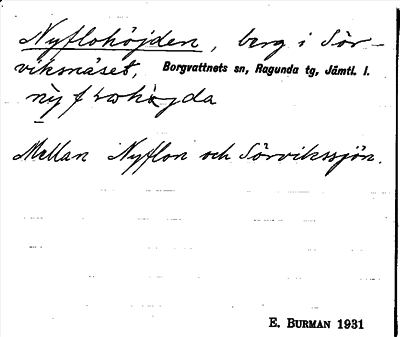 Nyflohöjden, berg i Sör-
viksnäset, Borgvattnets sn, Ragunda tg, Jämtl. l.
Mellan Nyflon och Sörvikssjön.
E. BURMAN 1931